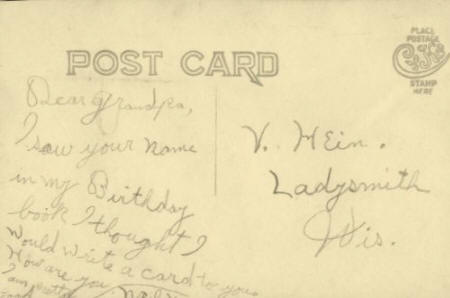 POST CARD
PLACE
POSTAGE
STAMP
HERE
Dear Grandpa,
I saw your name
in my Birthday
book I thought I
Would write a card to you
How are you
I am
V. Hein.
Ladysmith
Wis.